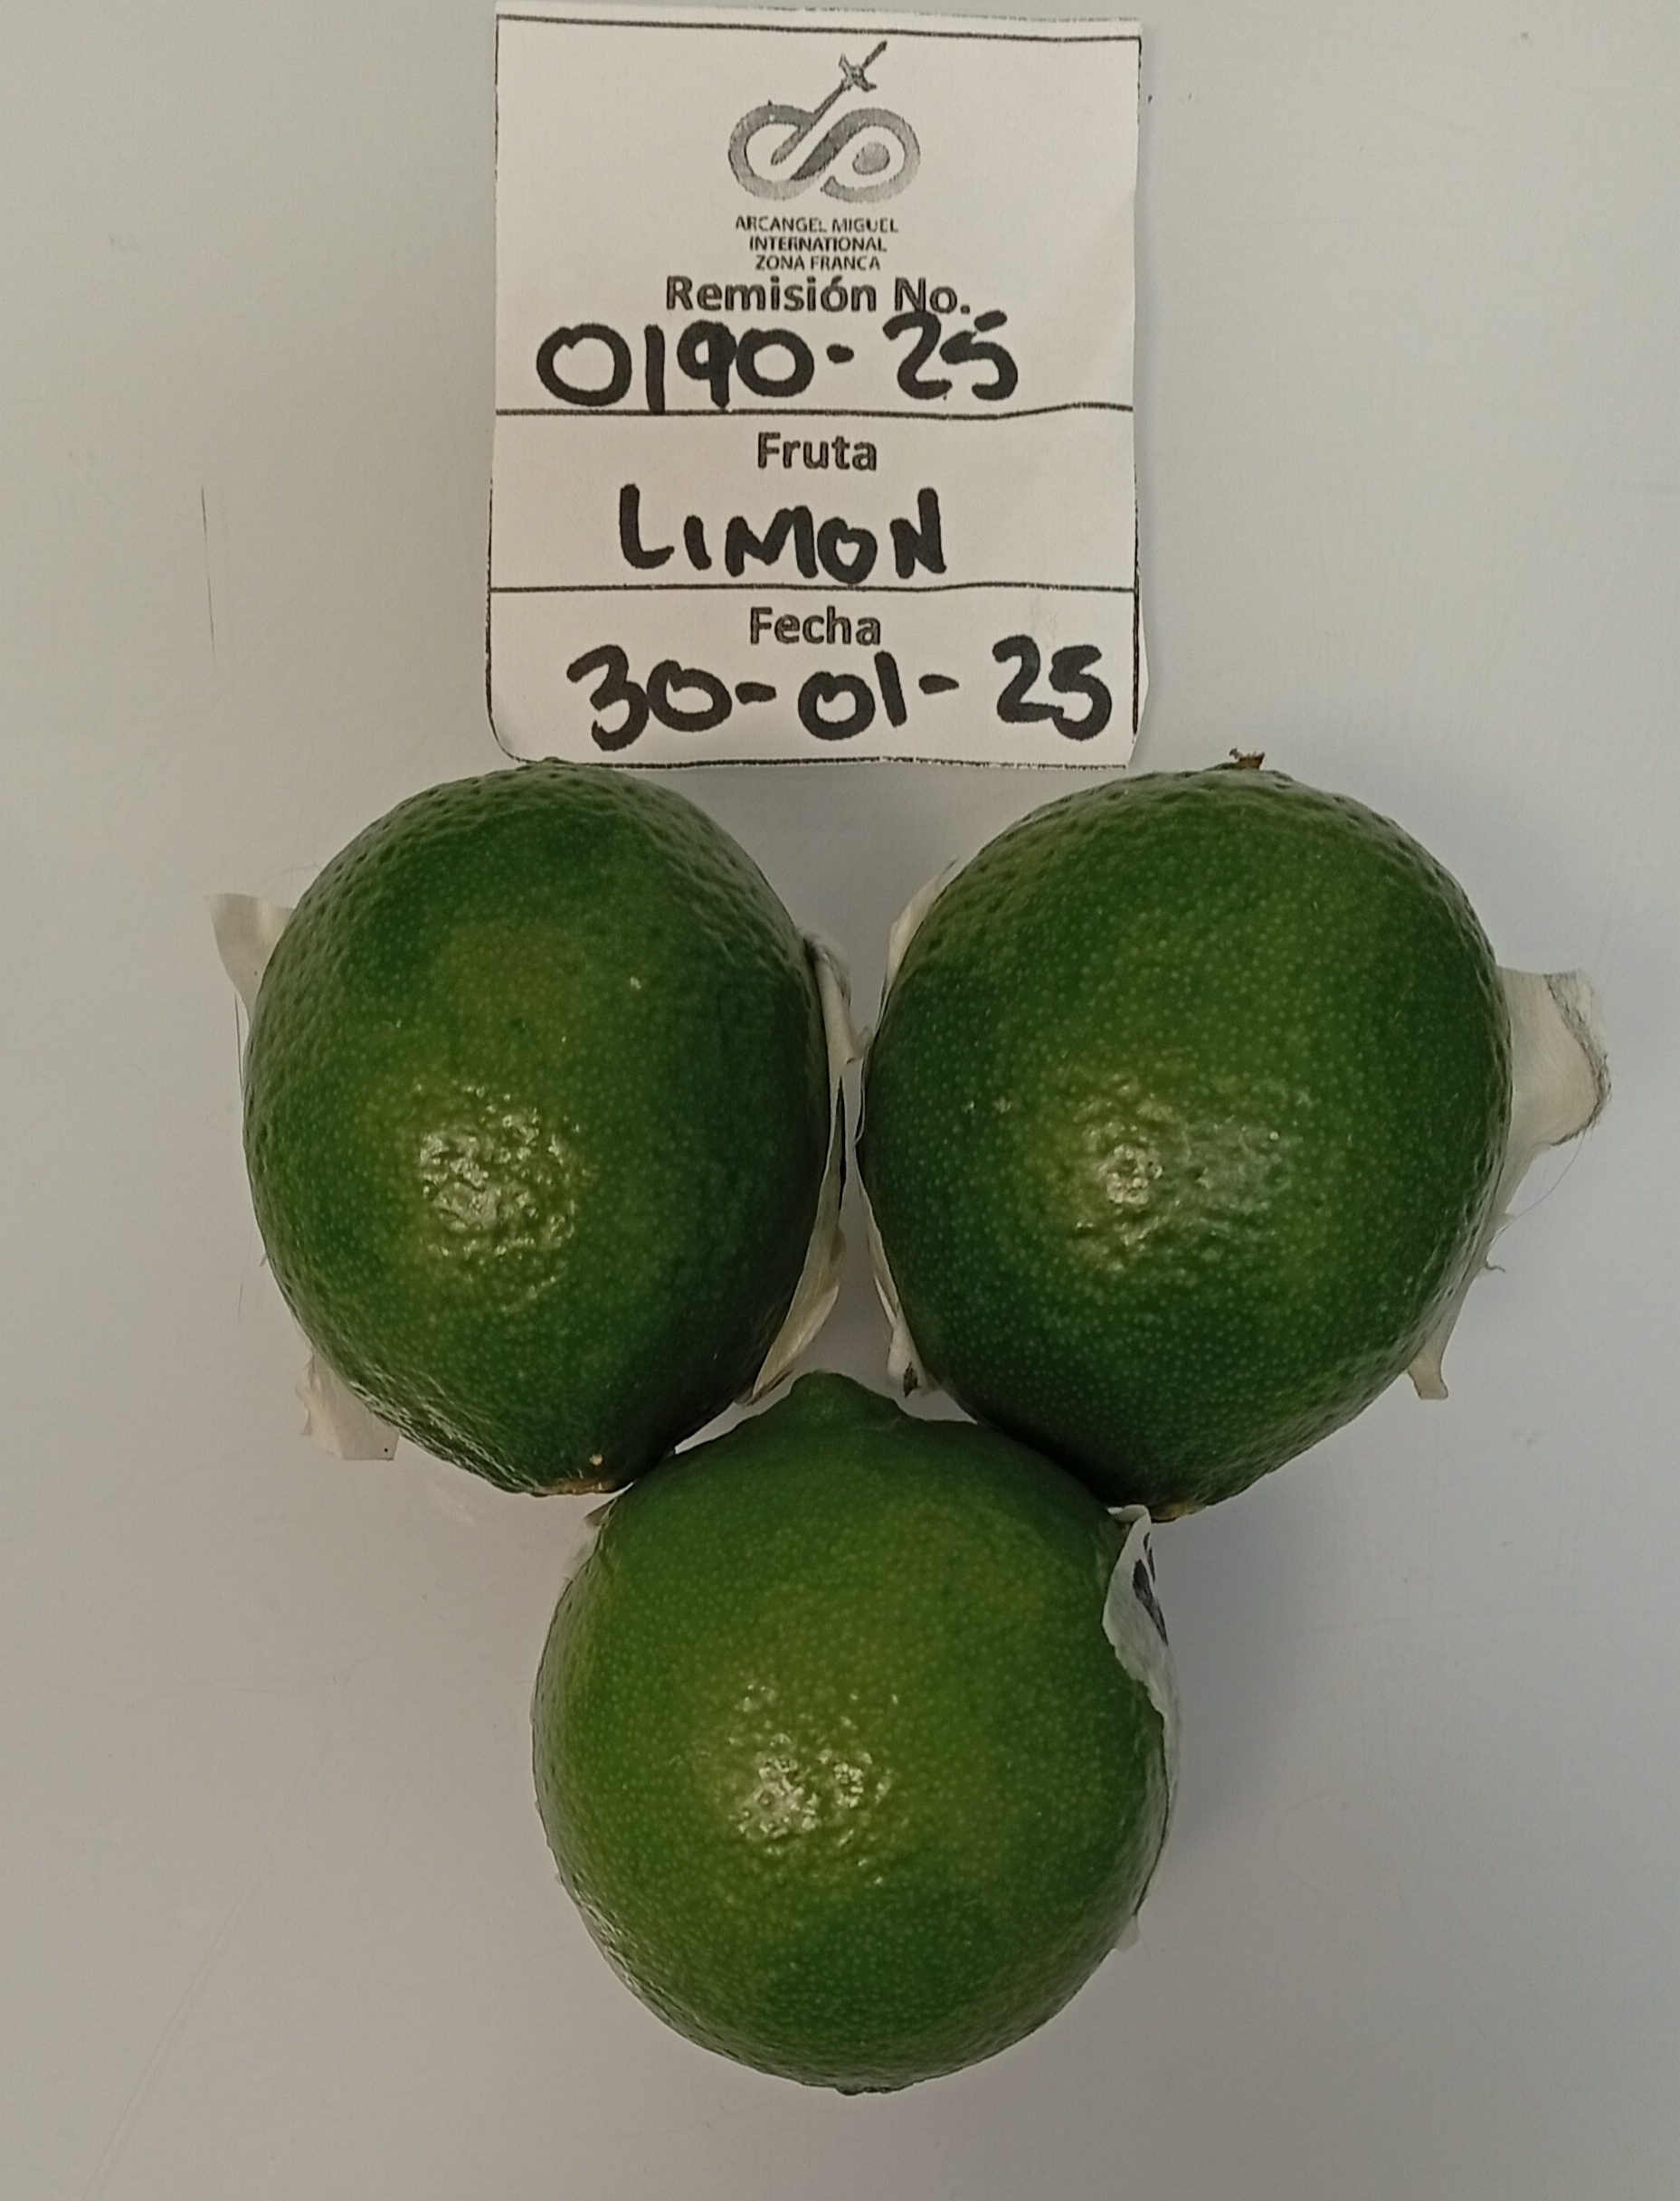 ARCANGEL MIGUEL
INTERNATIONAL
ZONA FRANCA
Remisión No.
0190-25
Fruta
LIMON
Fecha
30-01-25